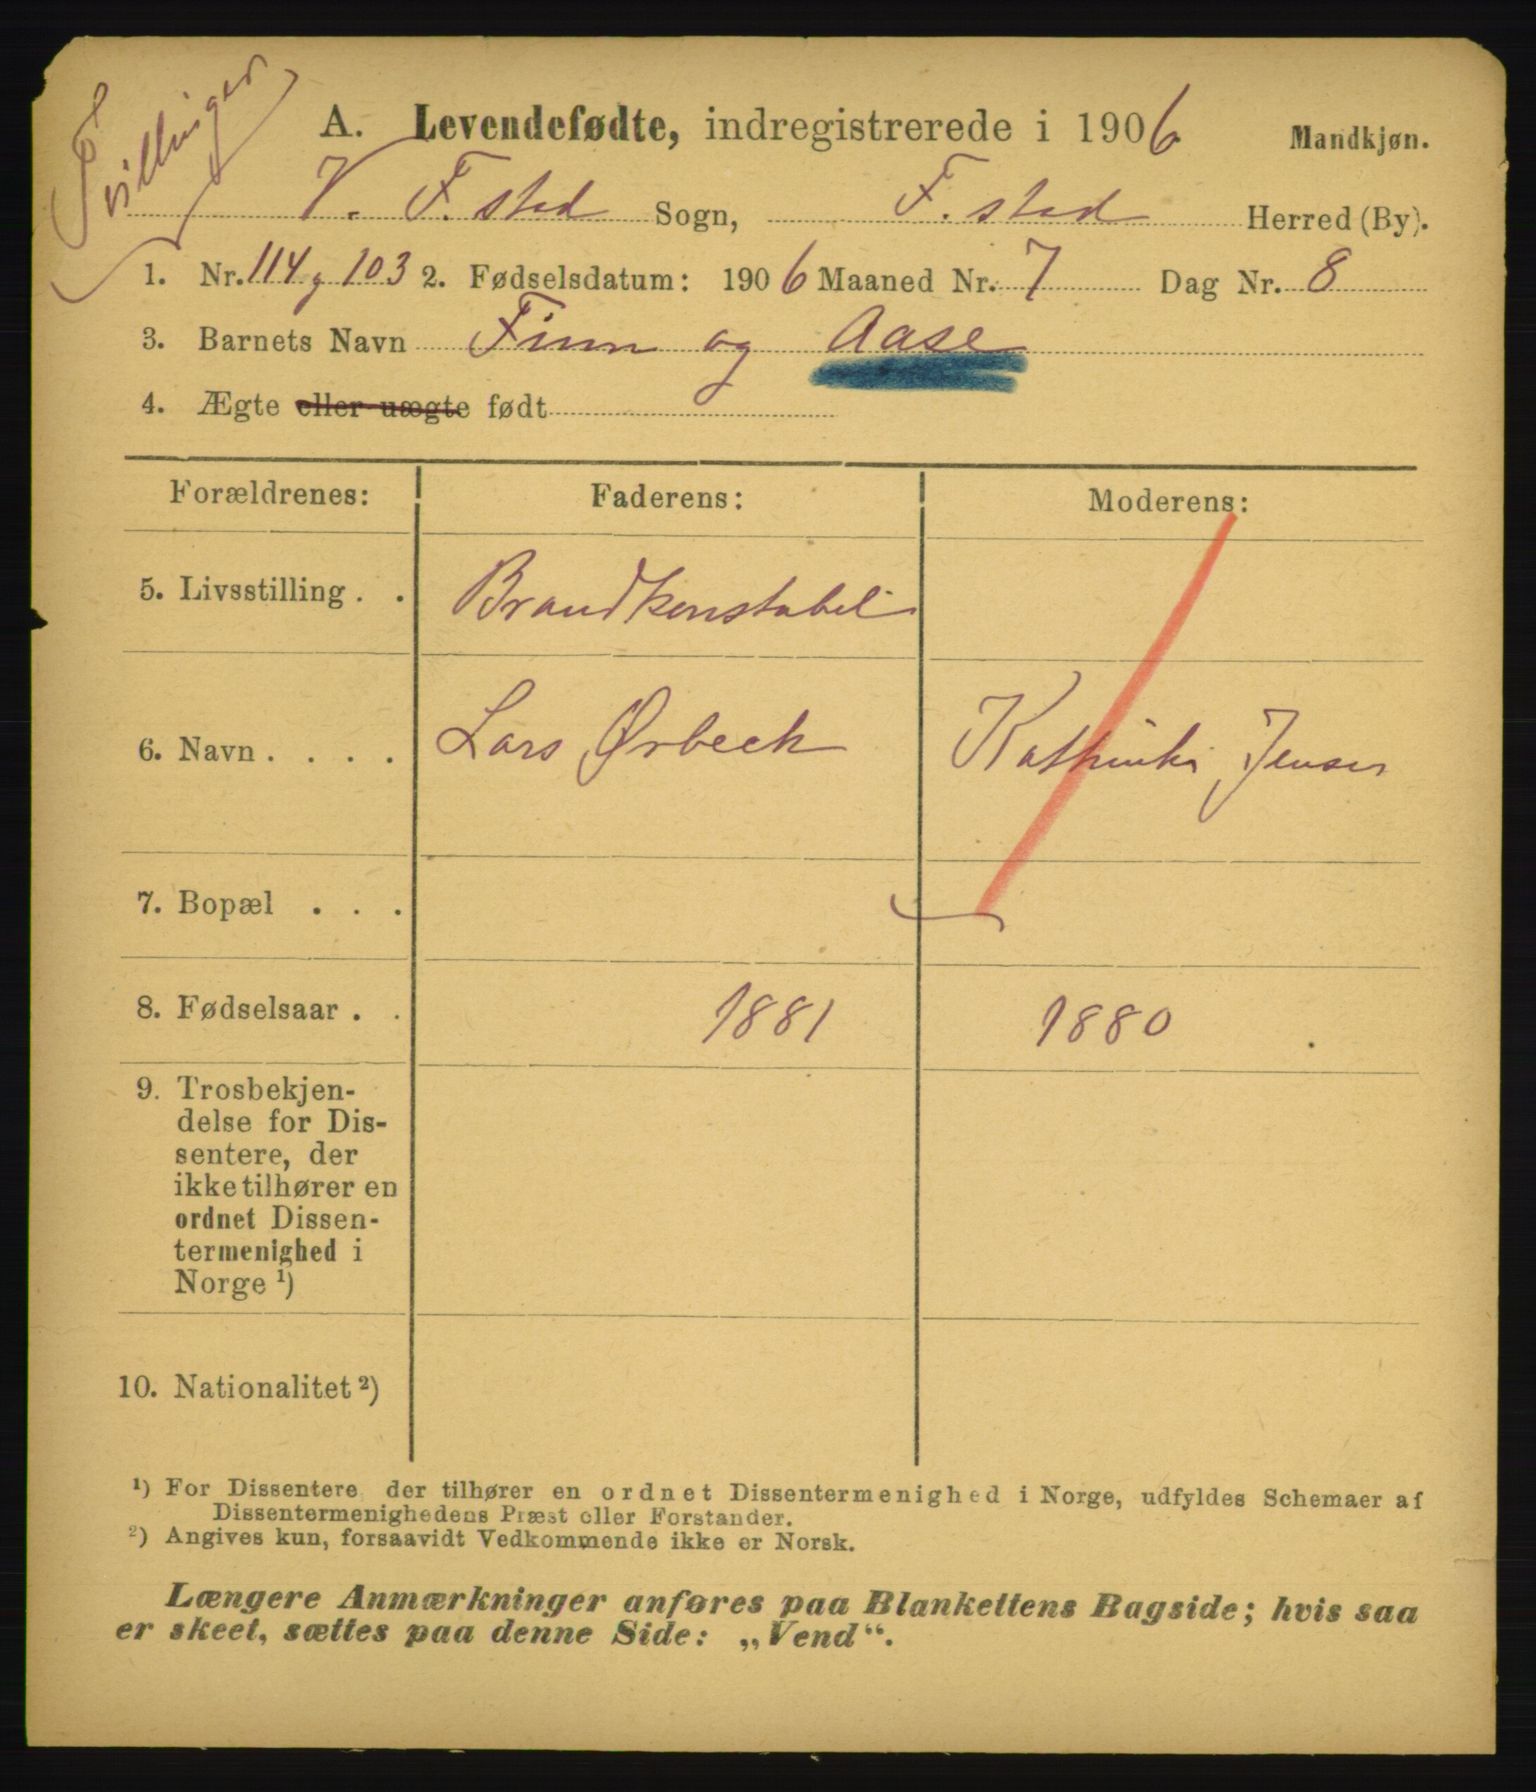 Tvillinger
A. Levendefødte, indregistrerede i 1906 Mandkjøn.
V. F.stad Sogn, F. stad Herred (By).
1. Nr. 114 g 103 2. Fødselsdatum: 1906 Maaned Nr. 7 Dag Nr. 8
3. Barnets Navn Finn og Aase
4. Ægte eller uægte født
Forældrenes: Faderens: Moderens:
5. Livsstilling . . Brandkonstabel
6. Navn . . . . Lars Ørbeck Kathinka Jensen
7. Bopæl . . .
8. Fødselsaar . . 1881 1880
9. Trosbekjen-
delse for Dis-
sentere, der
ikke tilhører en
ordnet Dissen-
termenighed i
Norge ¹)
10. Nationalitet ²)
¹) For Dissentere der tilhører en ordnet Dissentermenighed i Norge, udfyldes Schemaer af
Dissentermenighedens Præst eller Forstander.
²) Angives kun, forsaavidt Vedkommende ikke er Norsk.
Længere Anmærkninger anføres paa Blankettens Bagside; hvis saa
er skeet, sættes paa denne Side: „Vend“.